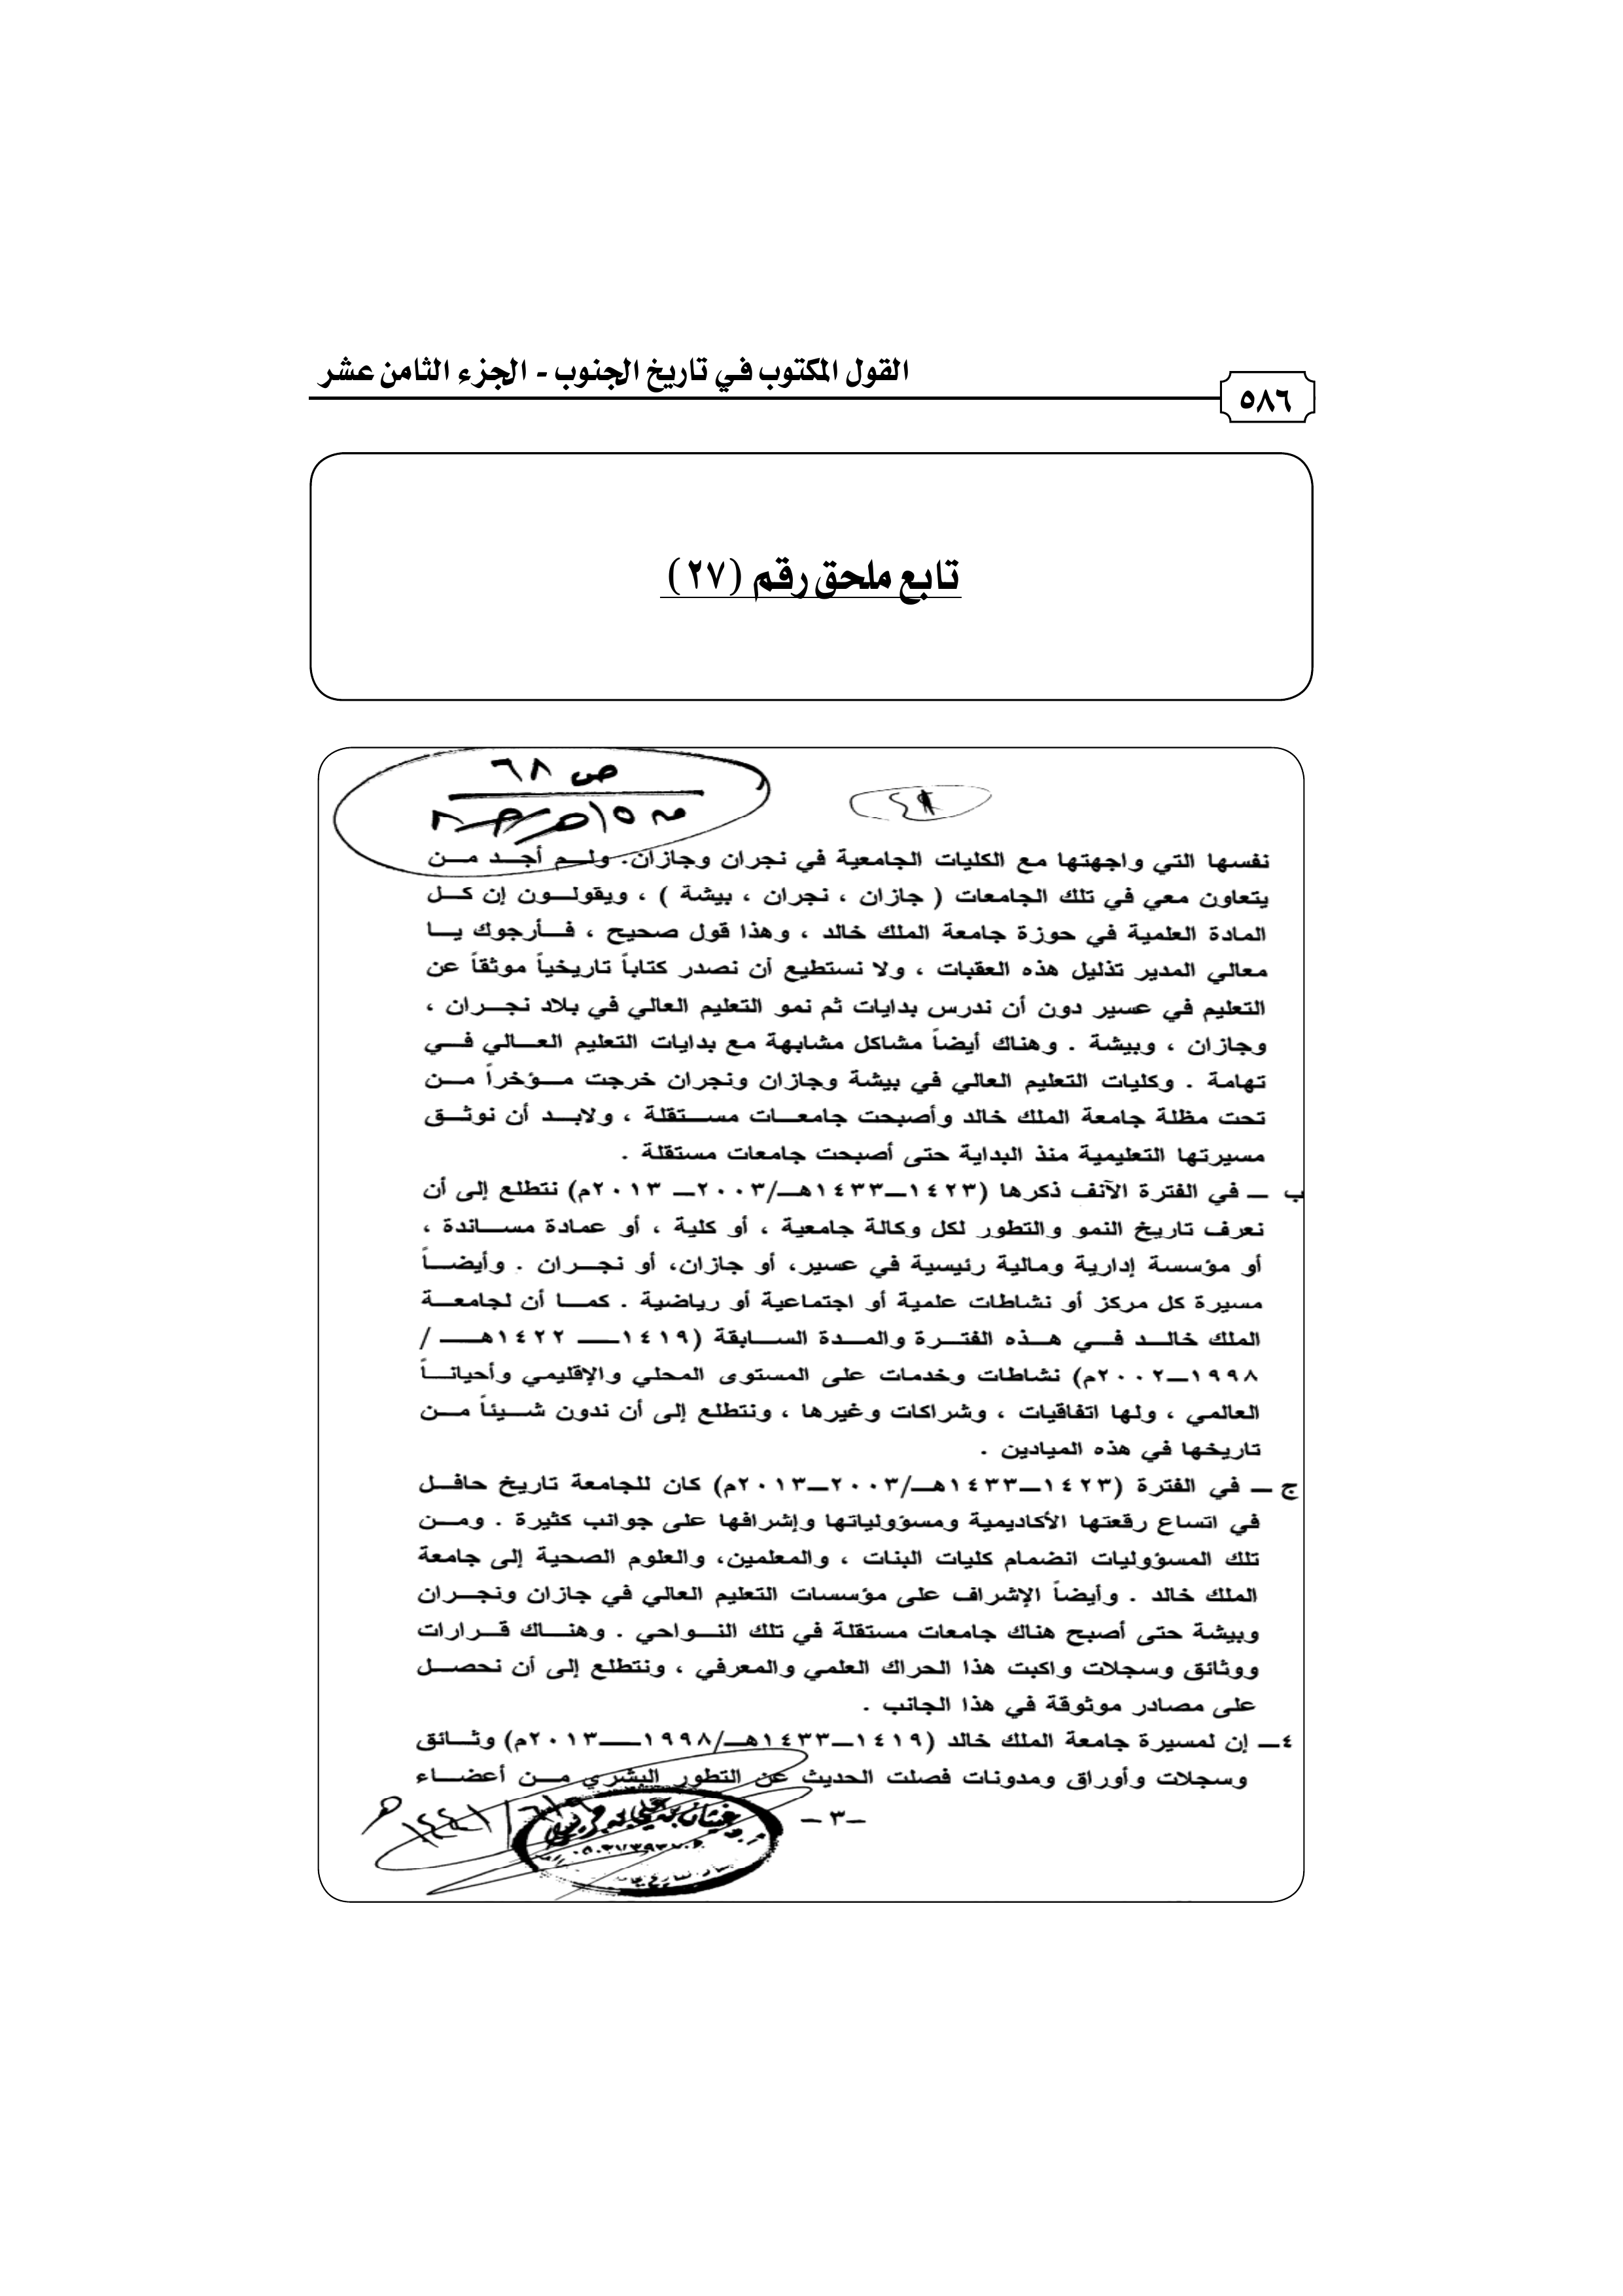 القول المكتوب في تاريخ الجنوب - الجزء الثامن عشر
٥٨٦
تابع ملحق رقم (٢٧)
ص ٦٨
نفسها التي واجهتها مع الكليات الجامعية في نجران وجازان. ولم أجد من
يتعاون معي في تلك الجامعات ( جازان ، نجران ، بيشة ) ، ويقولون إن كل
المادة العلمية في حوزة جامعة الملك خالد ، وهذا قول صحيح ، فأرجوك يا
معالي المدير تذليل هذه العقبات ، ولا نستطيع أن نصدر كتاباً تاريخياً موثقاً عن
التعليم في عسير دون أن ندرس بدايات ثم نمو التعليم العالي في بلاد نجران ،
وجازان ، وبيشة . وهناك أيضاً مشاكل مشابهة مع بدايات التعليم العالي في
تهامة . وكليات التعليم العالي في بيشة وجازان ونجران خرجت مؤخراً من
تحت مظلة جامعة الملك خالد وأصبحت جامعات مستقلة ، ولابد أن نوثق
مسيرتها التعليمية منذ البداية حتى أصبحت جامعات مستقلة .
ب ـ في الفترة الآنف ذكرها (١٤٢٣ـ١٤٣٣هـ/٢٠٠٣ـ ٢٠١٣م) نتطلع إلى أن
نعرف تاريخ النمو والتطور لكل وكالة جامعية ، أو كلية ، أو عمادة مساندة ،
أو مؤسسة إدارية ومالية رئيسية في عسير، أو جازان، أو نجران . وأيضاً
مسيرة كل مركز أو نشاطات علمية أو اجتماعية أو رياضية . كما أن لجامعة
الملك خالد في هذه الفترة والمدة السابقة (١٤١٩ـ ١٤٢٢هـ /
١٩٩٨ـ٢٠٠٢م) نشاطات وخدمات على المستوى المحلي والإقليمي وأحياناً
العالمي ، ولها اتفاقيات ، وشراكات وغيرها ، ونتطلع إلى أن ندون شيئاً من
تاريخها في هذه الميادين .
ج ـ في الفترة (١٤٢٣ـ١٤٣٣هـ/٢٠٠٣ـ٢٠١٣م) كان للجامعة تاريخ حافل
في اتساع رقعتها الأكاديمية ومسؤولياتها وإشرافها على جوانب كثيرة . ومن
تلك المسؤوليات انضمام كليات البنات ، والمعلمين، والعلوم الصحية إلى جامعة
الملك خالد . وأيضاً الإشراف على مؤسسات التعليم العالي في جازان ونجران
وبيشة حتى أصبح هناك جامعات مستقلة في تلك النواحي . وهناك قرارات
ووثائق وسجلات واكبت هذا الحراك العلمي والمعرفي ، ونتطلع إلى أن نحصل
على مصادر موثوقة في هذا الجانب .
٤ـ إن لمسيرة جامعة الملك خالد (١٤١٩ـ١٤٣٣هـ/١٩٩٨ـ٢٠١٣م) وثائق
وسجلات وأوراق ومدونات فصلت الحديث عن التطور البشري من أعضاء
ـ٣ـ